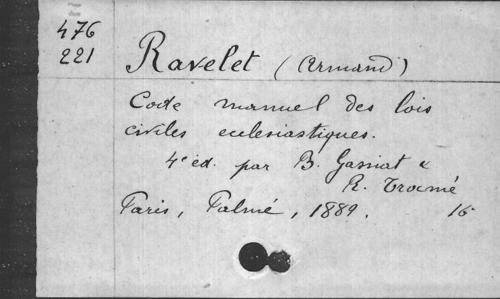 476
221
Ravelet (Armand)
Code manuel des lois
civiles ecclesiastiques.
4e éd. par B. Gassiat &
R. Trocmé
Paris, Palmé, 1889. 16